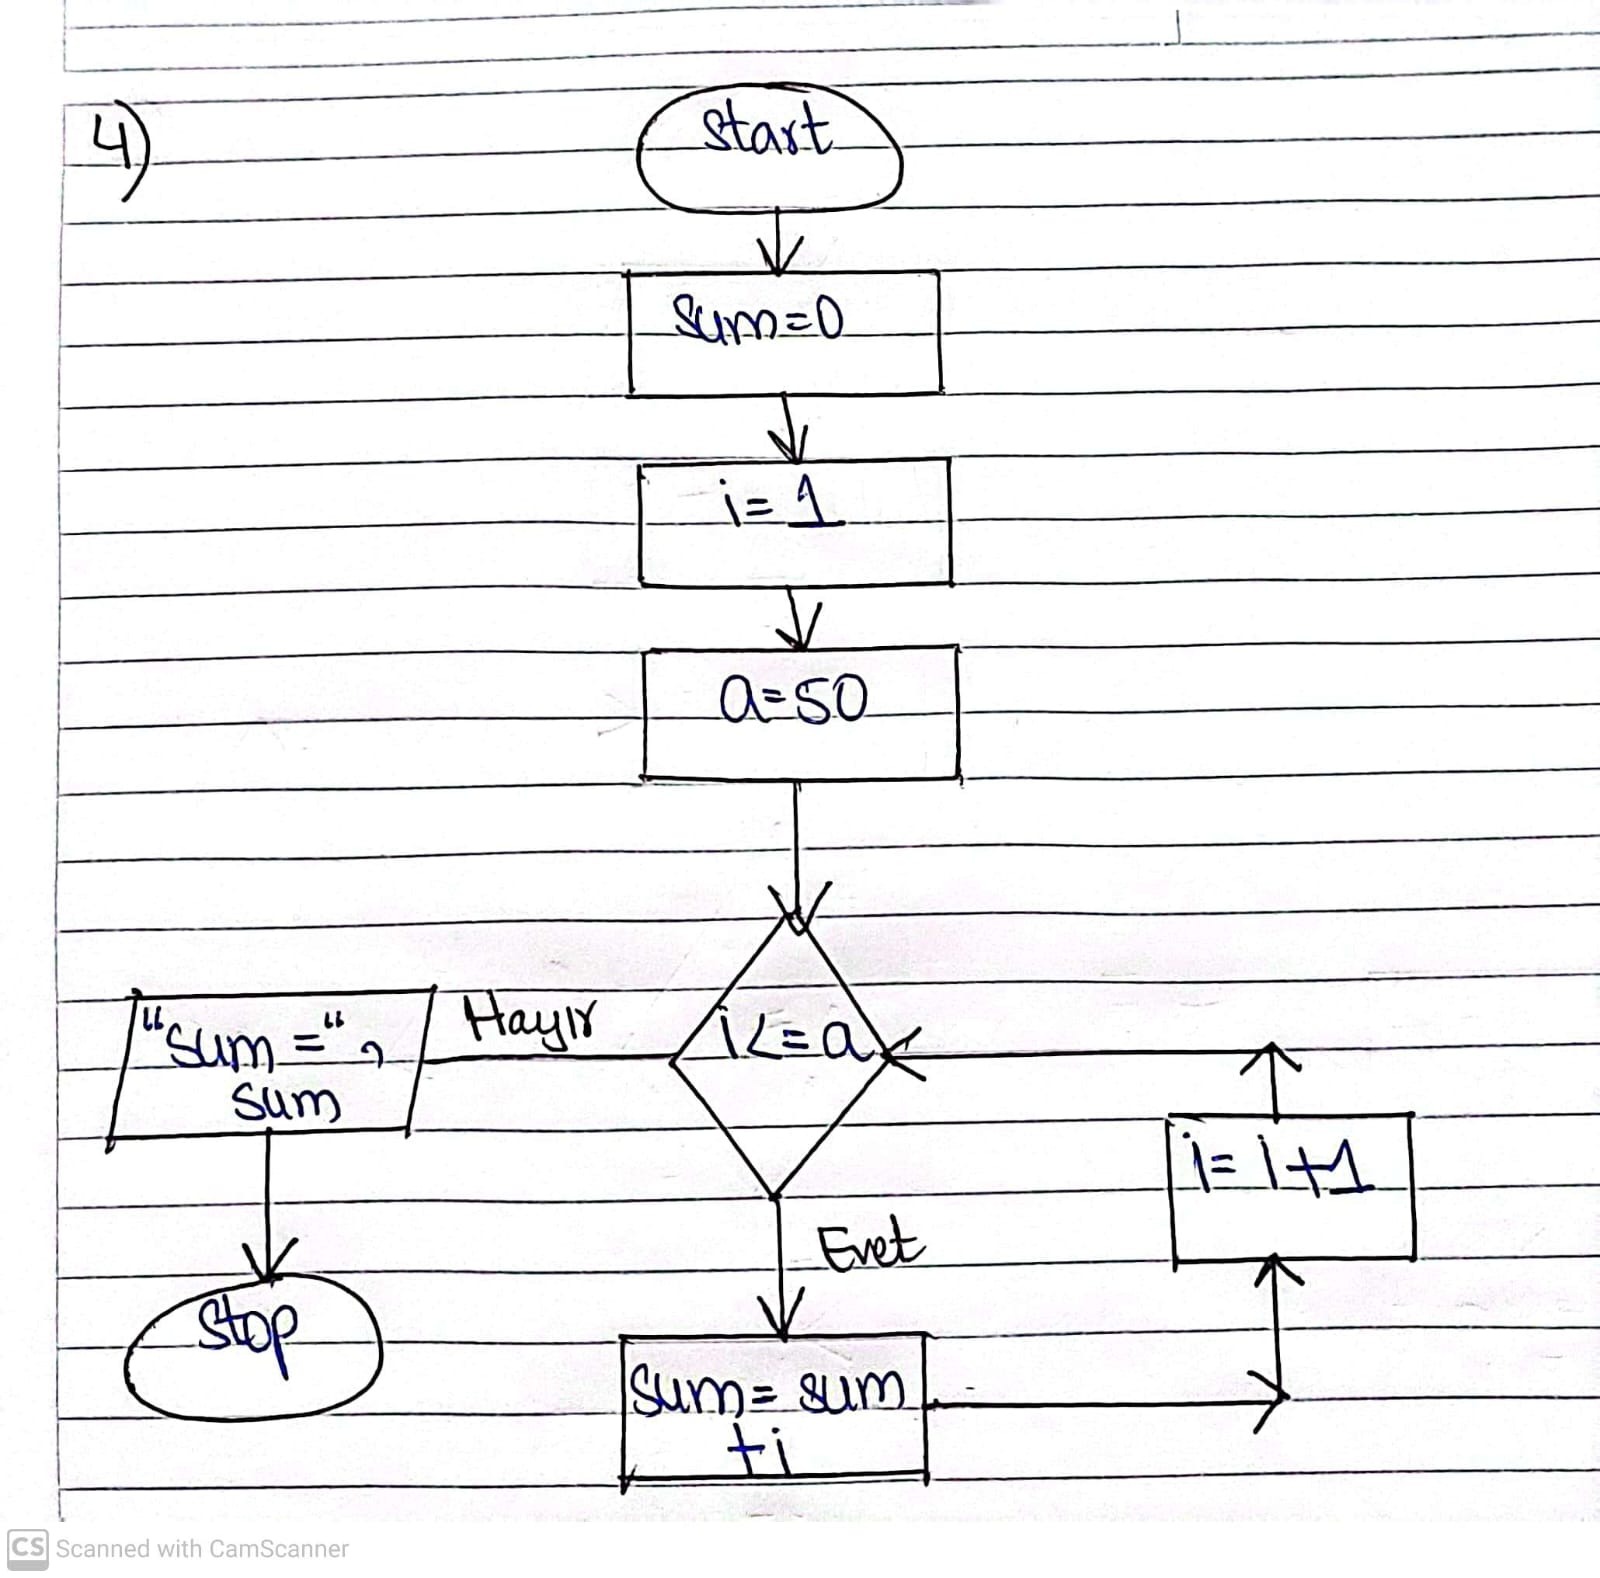 4)
Start
Sum=0
i=1
a=50
i<=a
Hayır
"sum=",
sum
Stop
Evet
sum=sum
+i
i=i+1
CS Scanned with CamScanner